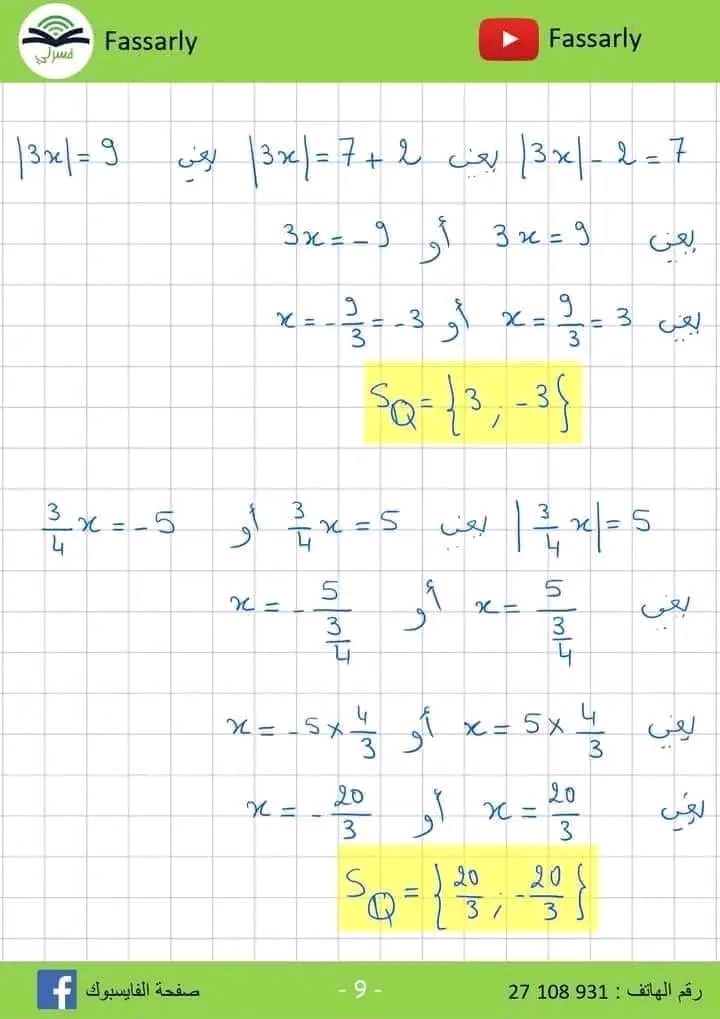 Fassarly
فسرلي
Fassarly
|3x| - 2 = 7 يعني |3x| = 7 + 2 يعني |3x| = 9
يعني 3x = 9 أو 3x = -9
يعني x = 9/3 = 3 أو x = -9/3 = -3
S_Q = {3 ; -3}
|3/4 x| = 5 يعني 3/4 x = 5 أو 3/4 x = -5
يعني x = 5/(3/4) أو x = -5/(3/4)
يعني x = 5 × 4/3 أو x = -5 × 4/3
يعني x = 20/3 أو x = -20/3
S_Q = {20/3 ; -20/3}
رقم الهاتف : 27 108 931
- 9 -
صفحة الفايسبوك